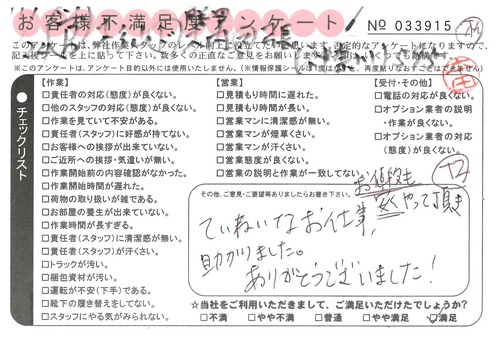 お客様不満足度アンケート
No 033915
このアンケートは、弊社作業スタッフのレベル向上に役立てたいと思います。否定的なアンケートになりますので、
※このアンケートは、アンケート目的以外には使用いたしません。
チェックリスト
【作業】
□責任者の対応(態度)が良くない。
□他のスタッフの対応(態度)が良くない。
□作業を見ていて不安がある。
□責任者(スタッフ)に好感が持てない。
□お客様への挨拶が出来ていない。
□ご近所への挨拶・気遣いが無い。
□作業開始前の内容確認がなかった。
□作業開始時間が遅れた。
□荷物の取り扱いが雑である。
□お部屋の養生が出来ていない。
□作業時間が長すぎる。
□責任者(スタッフ)に清潔感が無い。
□責任者(スタッフ)が汗くさい。
□トラックが汚い。
□梱包資材が汚い。
□運転が不安(下手)である。
□靴下の履き替えをしてない。
□スタッフにやる気がみられない。
【営業】
□見積もり時間に遅れた。
□見積もり時間が長い。
□営業マンに清潔感が無い。
□営業マンが煙草くさい。
□営業マンが汗くさい。
□営業態度が良くない。
□営業の説明と作業が一致してない
【受付・その他】
□電話の対応が良くない。
□オプション業者の説明
・作業が良くない。
□オプション業者の対応
(態度)が良くない。
その他、ご意見・ご要望等ありましたらお書き下さい。
お値段も
安くやって頂き
ていねいなお仕事、
助かりました。
ありがとうございました!
☆当社をご利用いただきまして、ご満足いただけたでしょうか?
□不満 □やや不満 □普通 □やや満足 ☑満足